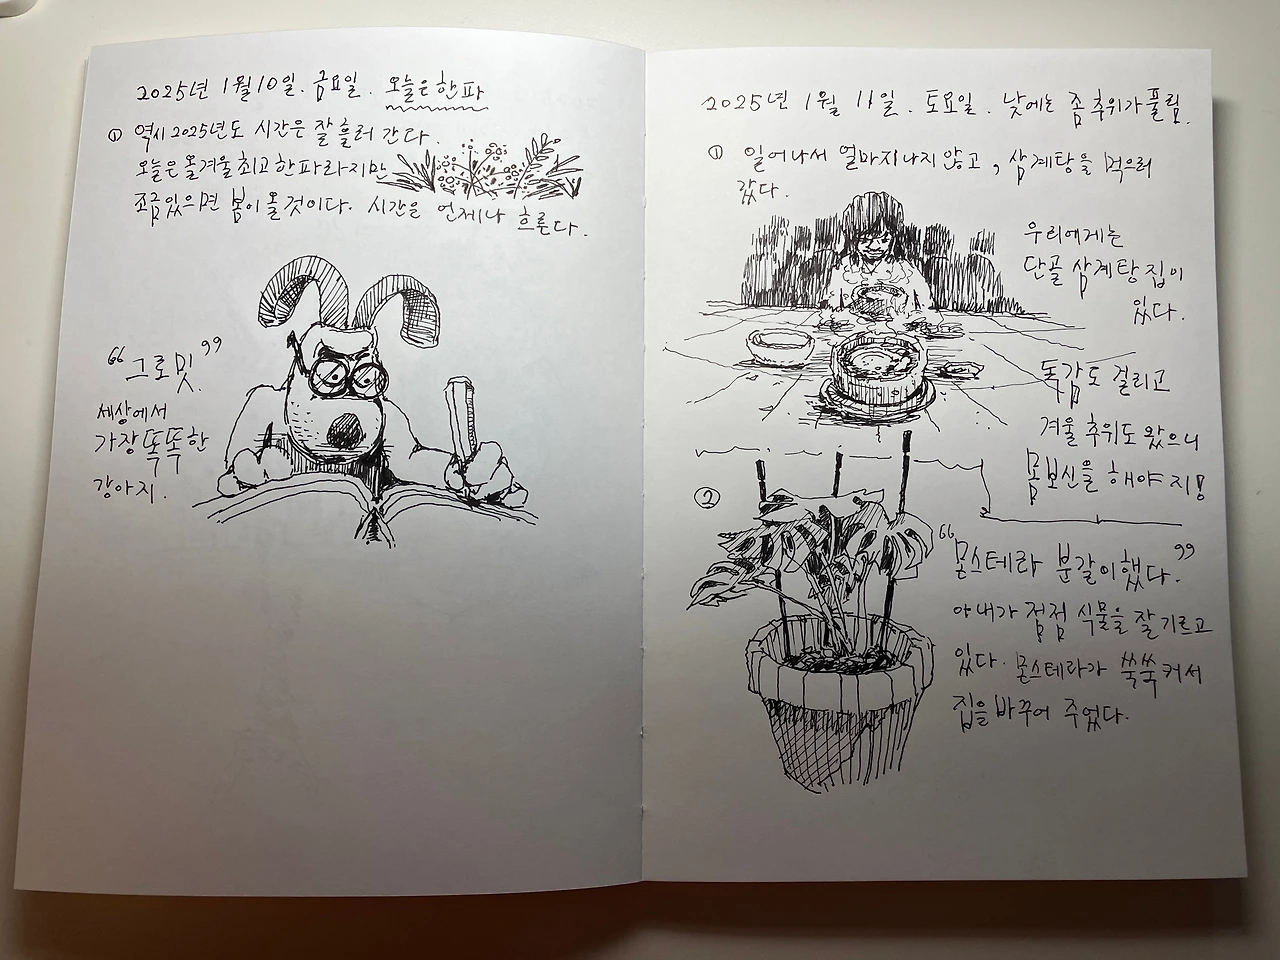 2025년 1월 10일. 금요일. 오늘은 한파
① 역시 2025년도 시간은 잘 흘러 간다.
오늘은 올겨울 최고 한파라지만
조금있으면 봄이 올 것이다. 시간은 언제나 흐른다.
“그로밋”
세상에서
가장 똑똑한
강아지.
2025년 1월 11일. 토요일. 낮에는 좀 추위가 풀림.
① 일어나서 얼마지나지 않고, 삼계탕을 먹으러
갔다.
우리에게는
단골 삼계탕 집이
있다.
독감도 걸리고
겨울 추위도 왔으니
몸보신을 해야지!
②
“몬스테라 분갈이했다.”
아내가 점점 식물을 잘 기르고
있다. 몬스테라가 쑥쑥 커서
집을 바꾸어 주었다.